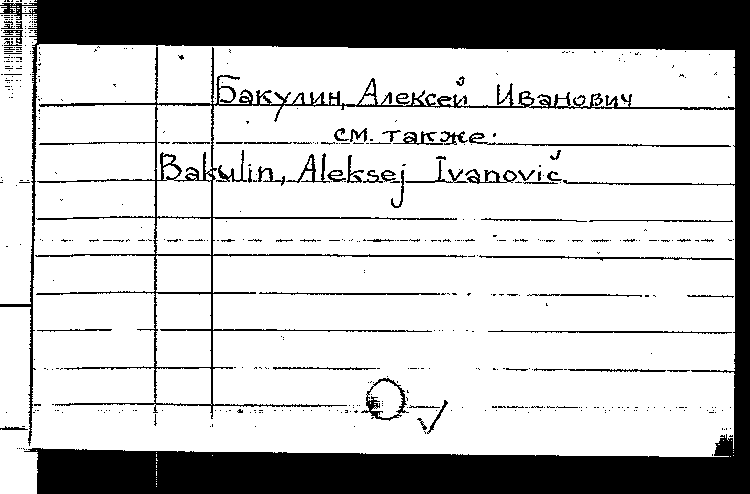 Бакулин, Алексей Иванович
см. также:
Bakulin, Aleksej Ivanovič.